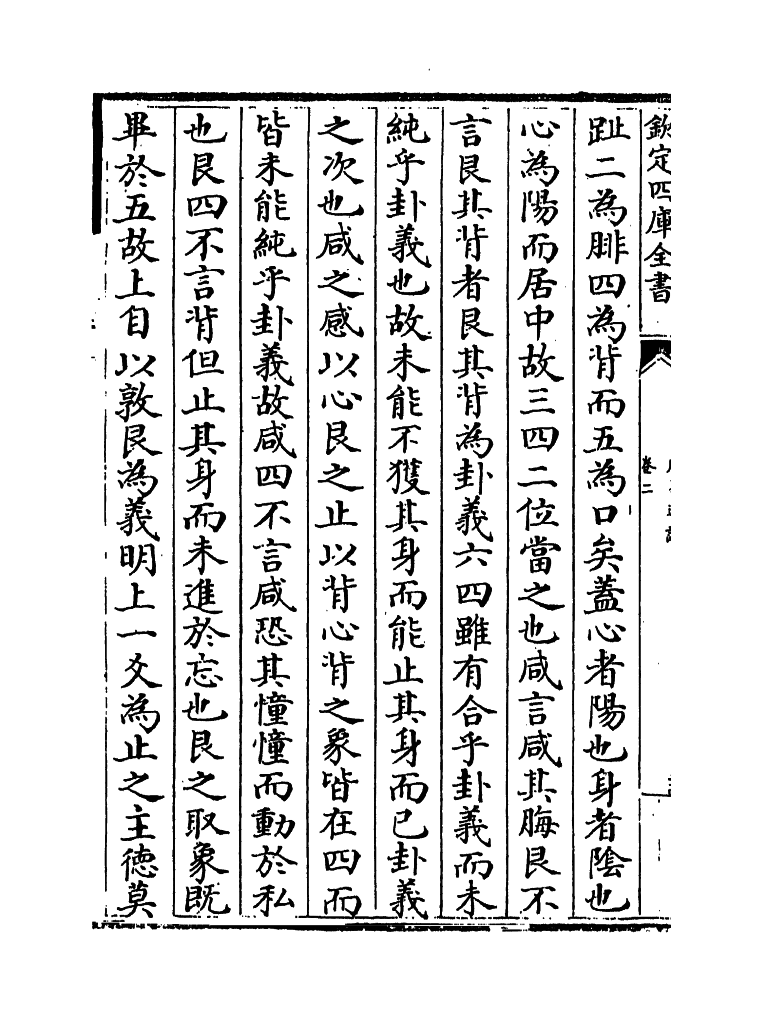 欽定四庫全書
卷二
趾二為腓四為背而五為口矣蓋心者陽也身者陰也
心為陽而居中故三四二位當之也咸言咸其脢艮不
言艮其背者艮其背為卦義六四雖有合乎卦義而未
純乎卦義也故未能不獲其身而能止其身而已卦義
之次也咸之感以心艮之止以背心背之象皆在四而
皆未能純乎卦義故咸四不言咸恐其憧憧而動於私
也艮四不言背但止其身而未進於忘也艮之取象既
畢於五故上自以敦艮為義明上一爻為止之主德莫